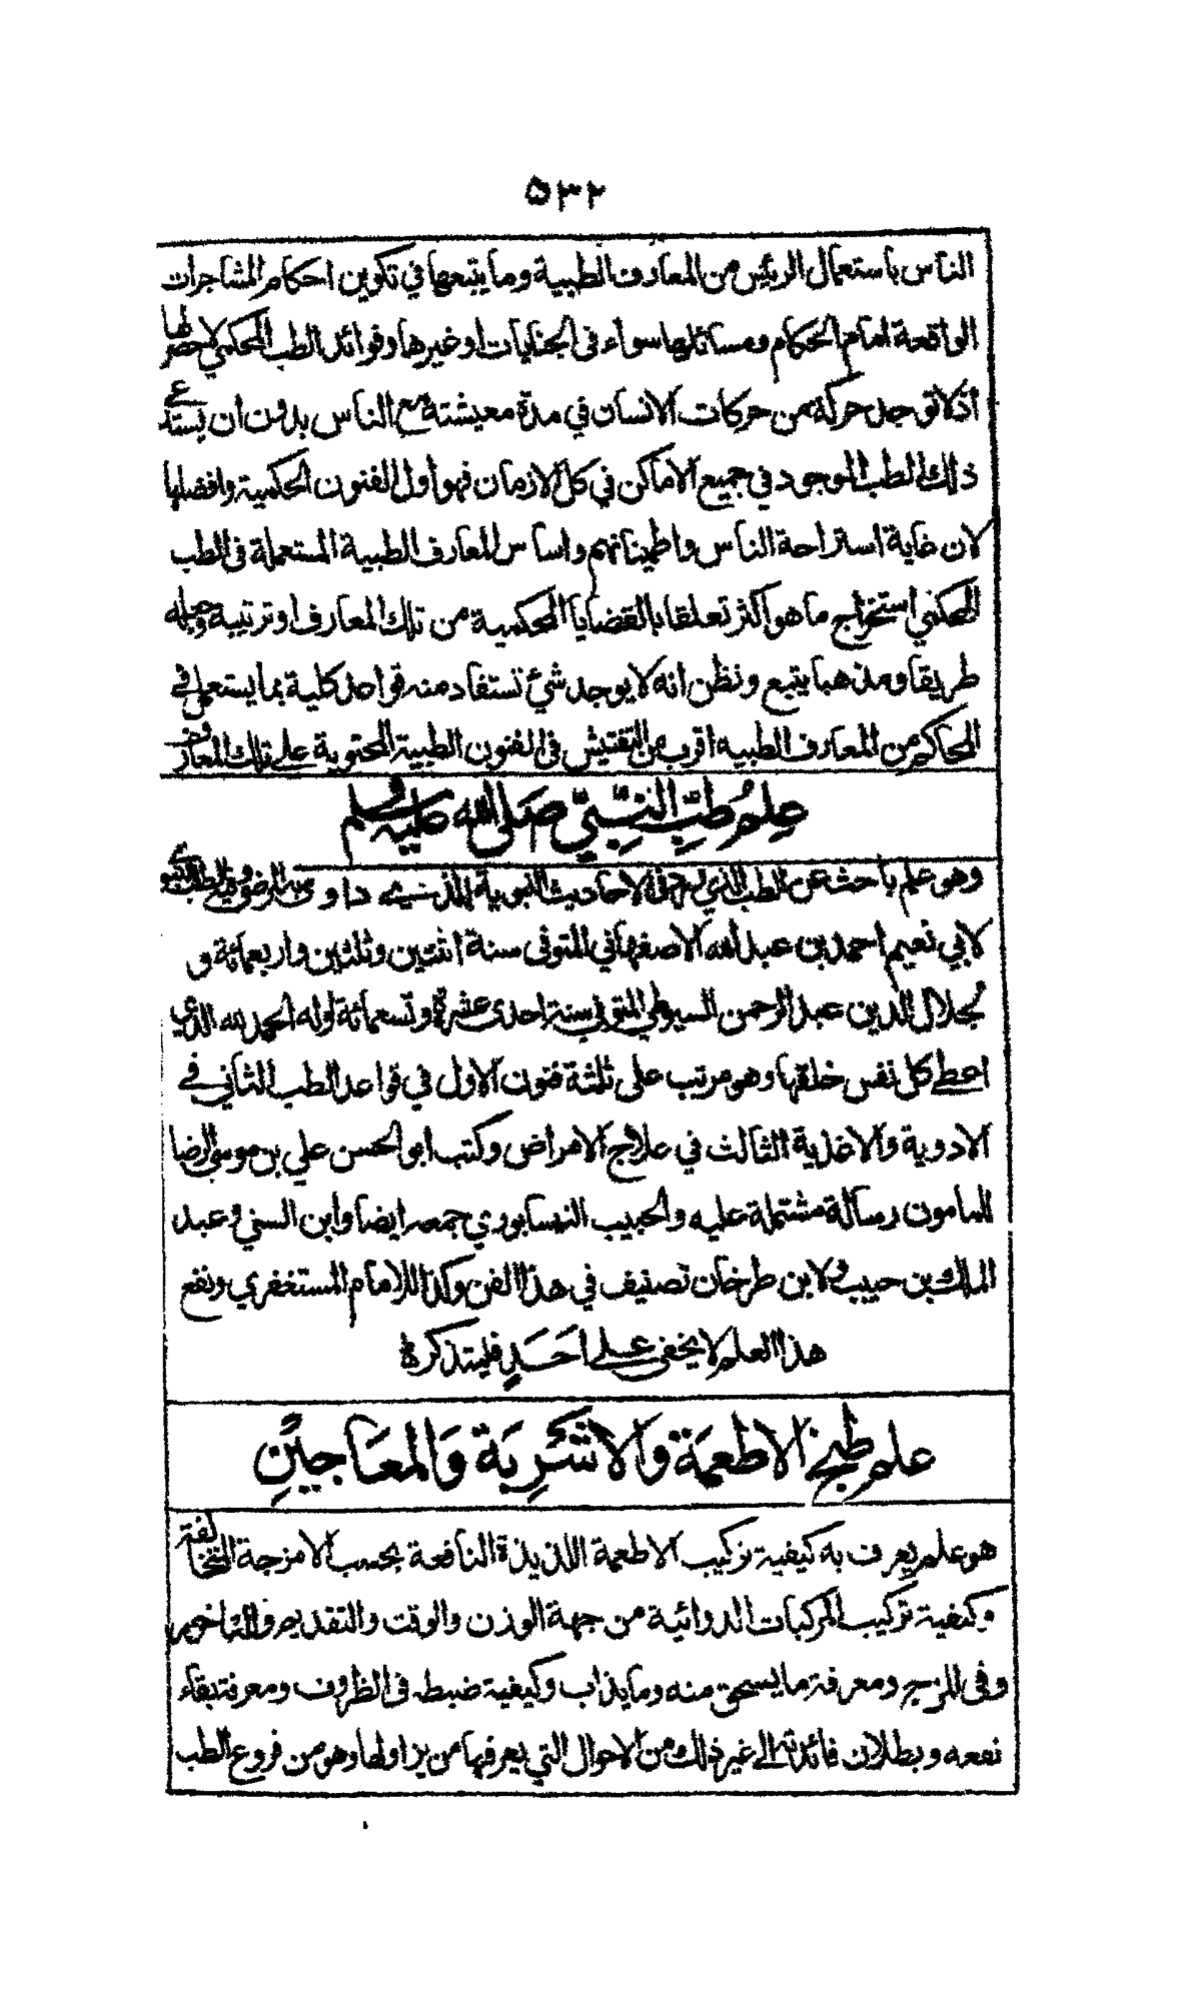 ٥٣٢
الناس باستعمال الرئيس من المعارف الطبية وما يتبعها في تكوين احكام المشاجرات
الواقعة امام الحكام ومسائلها سواء فى الجنايات او غيرها وفوائد الطب المحكمي لاحصر لها
اذ لا توجد حركة من حركات الانسان في مدة معيشته مع الناس بدون ان يستدعى
ذلك الطب الموجود في جميع الاماكن في كل الازمان فهو اول الفنون الحكمية وافضلها
لان غاية استراحة الناس واطمينانهم واساس المعارف الطبية المستعملة فى الطب
المحكمي استخراج ما هو اكثر تعلقا بالقضايا المحكمية من تلك المعارف او ترتيبه وجعله
طريقا ومذهبا يتبع ونظن انه لا يوجد شئ تستفاد منه قواعد كلية بما يستعمل في
المحاكم من المعارف الطبيه اقرب من التفتيش فى الفنون الطبية المحتوية على تلك المعارف
علم طب النبي صلى الله عليه وسلم
وهو علم باحث عن الطب الذي ورد فى الاحاديث النبوية الذي داوى به المرضى وفي الطب النبوي
لابي نعيم احمد بن عبد الله الاصفهاني المتوفى سنة اثنتين وثلثين واربعمائة و
لجلال الدين عبد الرحمن السيوطي المتوفى سنة احدى عشرة وتسعمائة اوله الحمد لله الذي
اعطى كل نفس خلقها وهو مرتب على ثلثة فنون الاول في قواعد الطب الثاني في
الادوية والاغذية الثالث في علاج الامراض وكتب ابو الحسن علي بن موسى الرضا
للمامون رسالة مشتملة عليه والحبيب النيسابوري جمعه ايضا وابن السني وعبد
الملك بن حبيب ولابن طرخان تصنيف في هذا الفن وكذا للامام المستغفري ونفع
هذا العلم لا يخفى على احد فليتذكرة
علم طبخ الاطعمة والاشربة والمعاجين
هو علم يعرف به كيفية تركيب الاطعمة اللذيذة النافعة بحسب الامزجة المتخالفة
وكيفية تركيب المركبات الدوائية من جهة الوزن والوقت والتقديم والتاخير
وفى المزج ومعرفة ما يسحق منه وما يذاب وكيفية ضبطه فى الظروف ومعرفة بقاء
نفعه وبطلان فائدته الى غير ذلك من الاحوال التي يعرفها من يزاولها وهو من فروع الطب